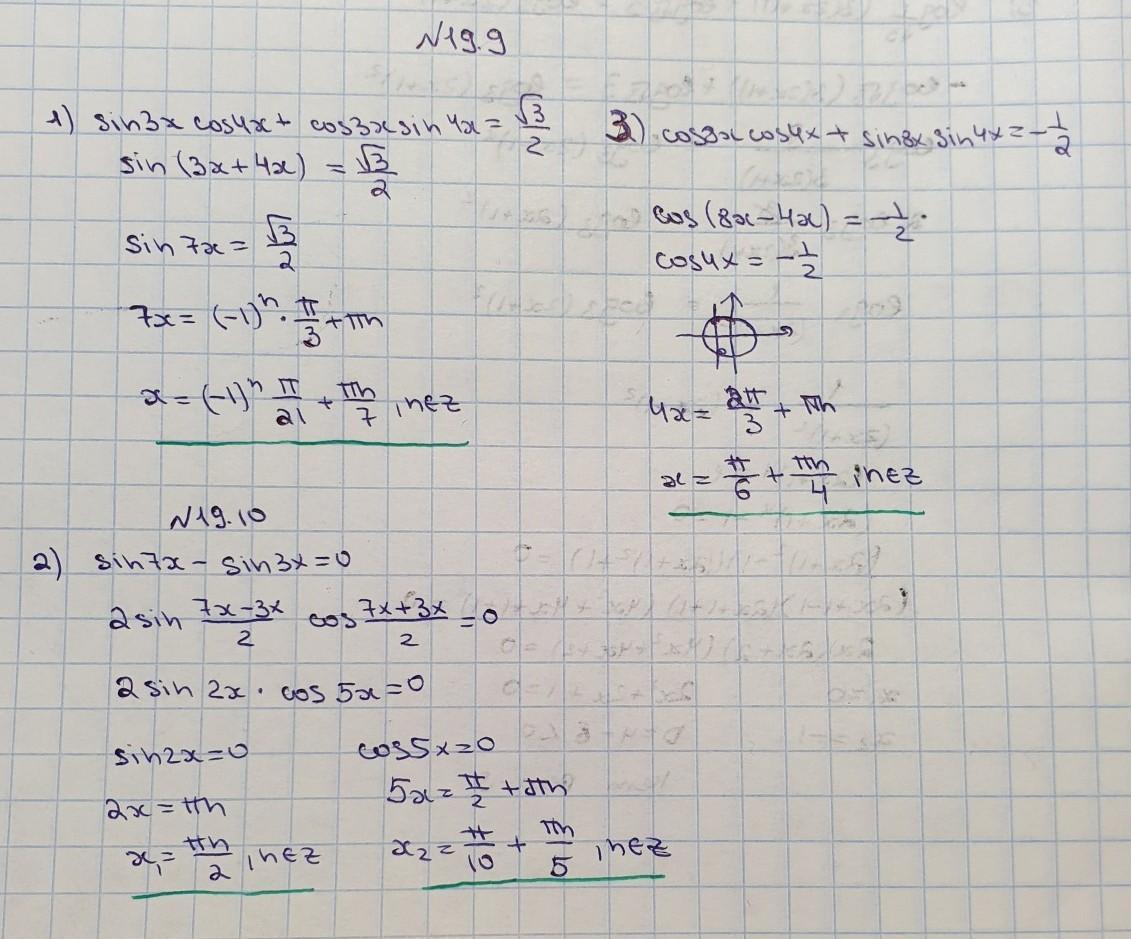 №19.9
1) sin3x cos4x + cos3x sin 4x = √3/2
sin (3x+4x) = √3/2
sin 7x = √3/2
7x = (-1)ⁿ · π/3 + πn
x = (-1)ⁿ π/21 + πn/7 , n∈Z
3) cos8x cos4x + sin8x sin4x = -1/2
cos (8x-4x) = -1/2.
cos4x = -1/2
4x = 2π/3 + πn
x = π/6 + πn/4 , n∈Z
№19.10
2) sin7x - sin3x = 0
2 sin (7x-3x)/2 cos (7x+3x)/2 = 0
2 sin 2x · cos 5x = 0
sin2x = 0
2x = πn
x₁ = πn/2 , n∈Z
cos5x = 0
5x = π/2 + πn
x₂ = π/10 + πn/5 , n∈Z